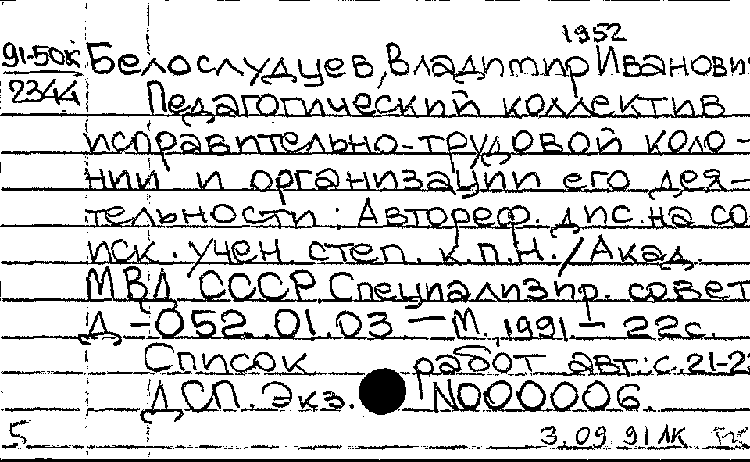 1952
91-50к Белослудцев, Владимир Иванович
2344 Педагогический коллектив
исправительно-трудовой коло-
нии и организации его дея-
тельности: Автореф. дис. на со
иск. учен. степ. к.п.н./Акад.
МВД СССР Специализир. совет
Д-052.01.03 – М., 1991 – 22с.
Список работ авт.: с. 21-22
ДСП. Экз. N000006.
5 3.09 91 ЛК